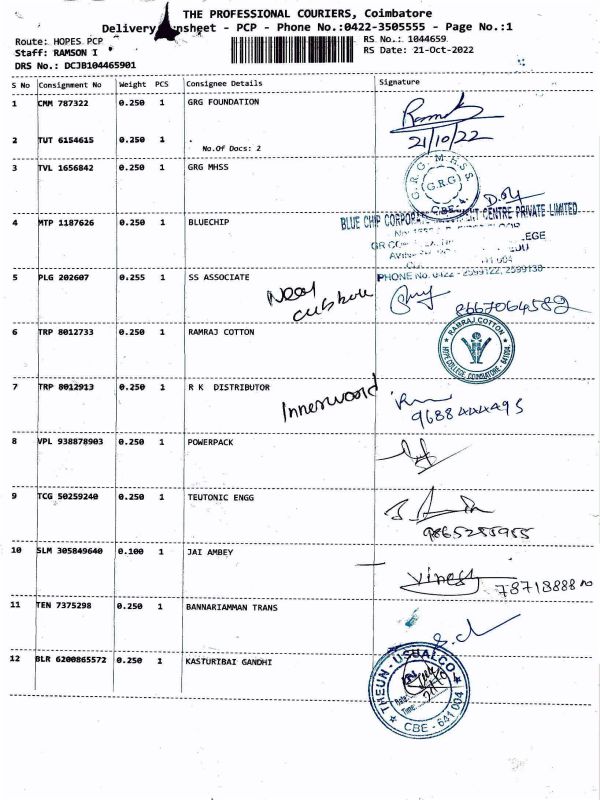 THE PROFESSIONAL COURIERS, Coimbatore
Delivery - PCP - Phone No.:0422-3505555 - Page No.:1
Route: HOPES PCP
RS No.: 1044659
Staff: RAMSON I
RS Date: 21-Oct-2022
DRS No.: DCJB104465901
S No Consignment No Weight PCS Consignee Details Signature
1 CMM 787322 0.250 1 GRG FOUNDATION
21/10/22
2 TUT 6154615 0.250 1 .
No.Of Docs: 2
3 TVL 1656842 0.250 1 GRG MHSS
G.R.G. M.H.S.S
(G.R.G)
CBE-4.
4 MTP 1187626 0.250 1 BLUECHIP
BLUE CHIP CENTRE PRIVATE LIMITED
PHONE No. 0422 - 2599122, 2599130
5 PLG 202607 0.255 1 SS ASSOCIATE
Near
8667064582
6 TRP 8012733 0.250 1 RAMRAJ COTTON
RAMRAJ COTTON
HOPE COLLEGE, COIMBATORE
7 TRP 8012913 0.250 1 R K DISTRIBUTOR
Innerword
9688444495
8 VPL 938878903 0.250 1 POWERPACK
9 TCG 50259240 0.250 1 TEUTONIC ENGG
9865255955
10 SLM 305849640 0.100 1 JAI AMBEY
11 TEN 7375298 0.250 1 BANNARIAMMAN TRANS
12 BLR 6200865572 0.250 1 KASTURIBAI GANDHI
THEUN-USUALCO
Date:
Time:
CBE - 641 004